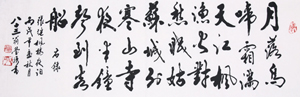 月落烏
啼霜滿
天江楓
漁火對
愁眠姑
蘇城外
寒山寺
夜半鐘
聲到客
船
右錄
張繼楓橋夜泊